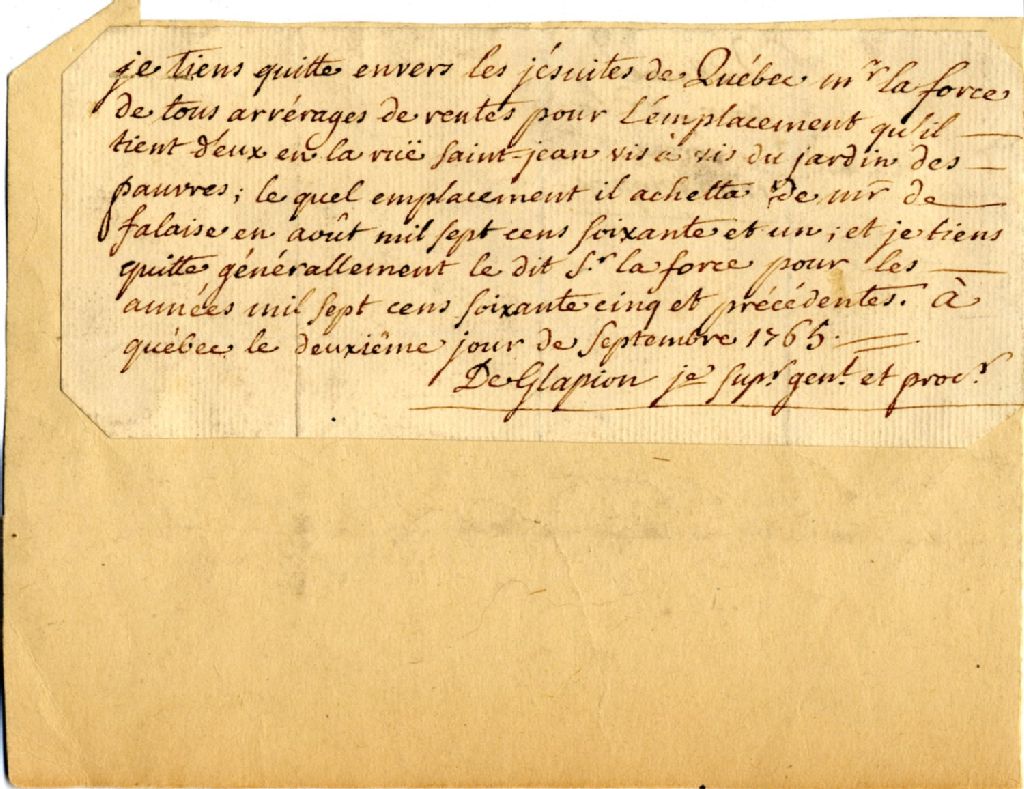 je tiens quitte envers les jésuites de Québec mr la force
de tous arrérages de rentes pour L'émplacement qu'il
tient d'eux en la ruë saint-jean vis à vis du jardin des
pauvres; le quel emplacement il achetta de mr de
falaise en août mil sept cens soixante et un; et je tiens
quitte générallement le dit Sr la force pour les
années mil sept cens soixante cinq et précédentes. À
québec le deuxiëme jour de Septembre 1765.
De Glapion je supr genl et procr